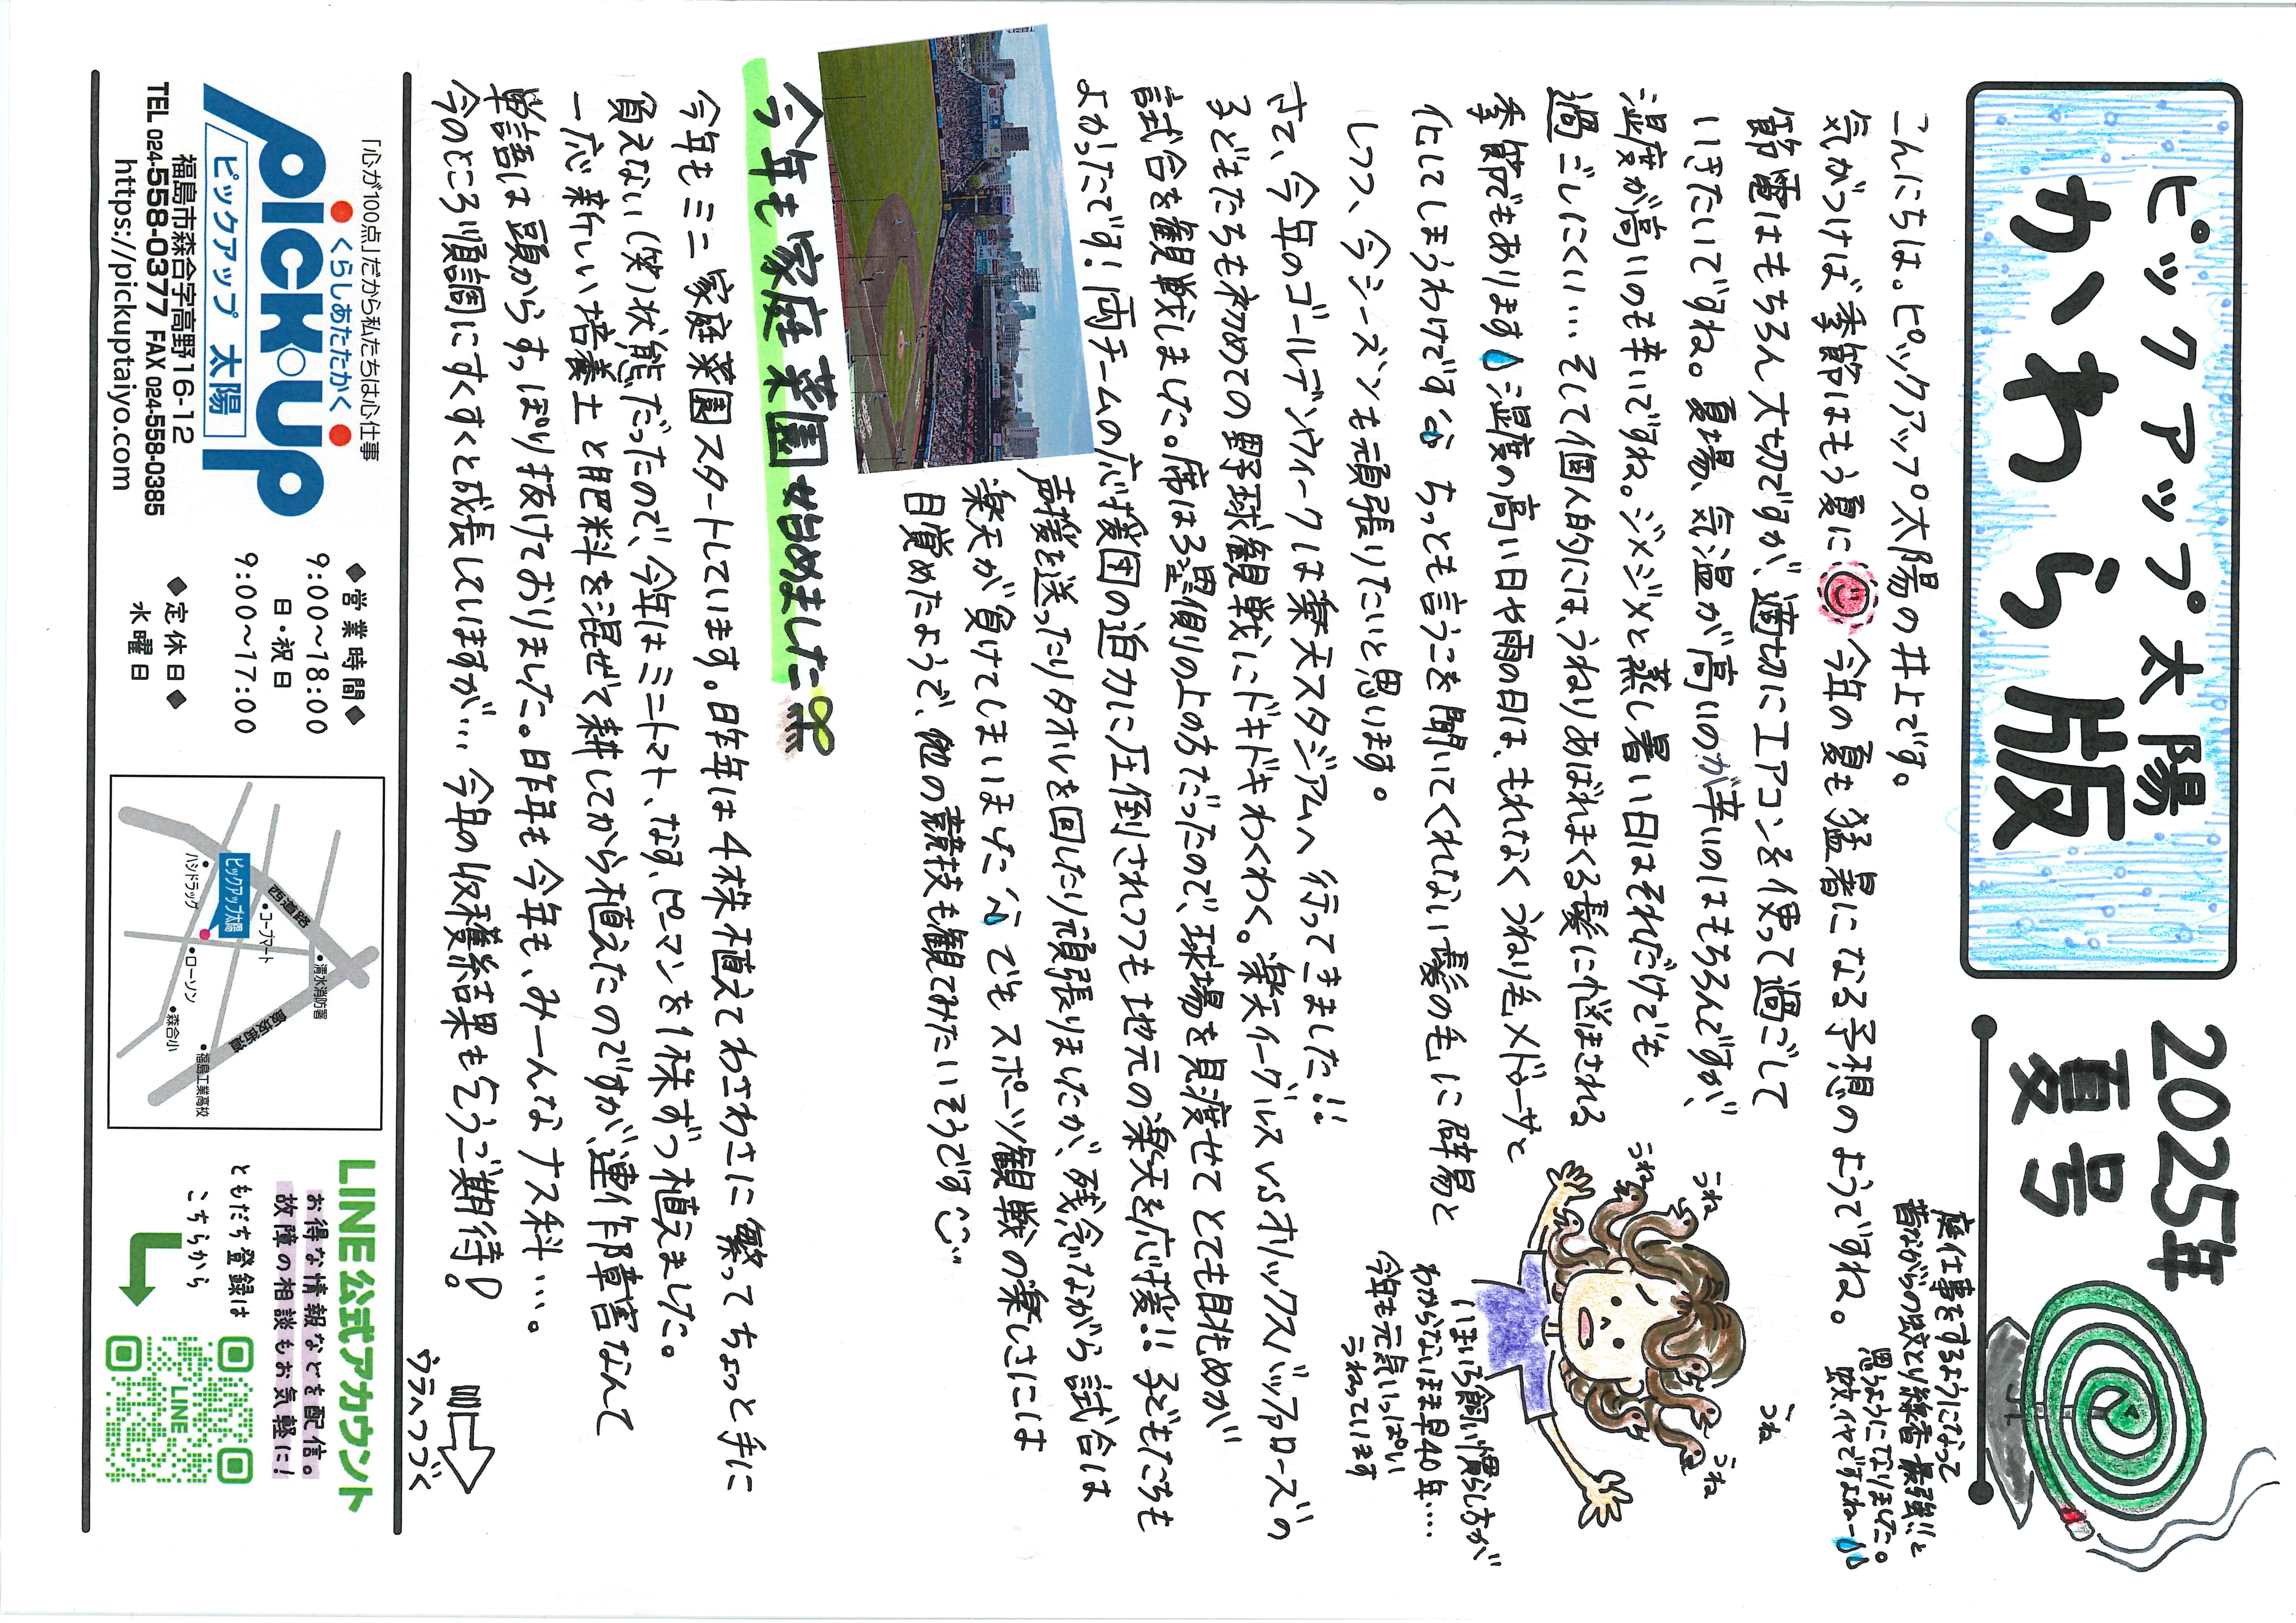 ピックアップ太陽
かわら版
2025年
夏号
庭仕事をするようになって
昔ながらの蚊とり線香最強!!と
思うようになりました。
蚊、イヤですよねー
こんにちは。ピックアップ太陽の井上です。
気がつけば季節はもう夏に 今年の夏も猛暑になる予想のようですね。
節電はもちろん大切ですが、適切にエアコンを使って過ごして
いきたいですね。夏場、気温が高いのが辛いのはもちろんですが、
湿度が高いのも辛いですね。ジメジメと蒸し暑い日はそれだけでも
過ごしにくい… そして個人的には、うねりあばれまくる髪に悩まされる
季節でもあります 湿度の高い日や雨の日は、もれなくうねり毛メドゥーサと
化してしまうわけです ちっとも言うことを聞いてくれない髪の毛に辟易と
しつつ、今シーズンも頑張りたいと思います。
うね
うね
うね
うね
いまいち飼い慣らし方が
わからないまま早40年…
今年も元気いっぱい
うねっています
さて、今年のゴールデンウィークは楽天スタジアムへ行ってきました!!
子どもたちも初めての野球観戦にドキドキわくわく。楽天イーグルスvsオリックスバッファローズの
試合を観戦しました。席は3塁側の上の方だったので、球場を見渡せてとても眺めが
よかったです!両チームの応援団の迫力に圧倒されつつも地元の楽天を応援!!子どもたちも
声援を送ったりタオルを回したり頑張りましたが、残念ながら試合は
楽天が負けてしまいました でもスポーツ観戦の楽しさには
目覚めたようで、他の競技も観てみたいそうです
今年も家庭菜園始めました
今年もミニ家庭菜園スタートしています。昨年は4株植えてわさわさに繁ってちょっと手に
負えない(笑)状態だったので、今年はミニトマト、なす、ピーマンを1株ずつ植えました。
一応新しい培養土と肥料を混ぜて耕してから植えたのですが、連作障害なんて
単語は頭からすっぽり抜けておりました。昨年も今年も、みーんなナス科…。
今のところ順調にすくすくと成長していますが… 今年の収穫結果も乞うご期待!
ウラへつづく
「心が100点」だから私たちは心仕事
くらしあたたかく
PICK・UP
ピックアップ 太陽
福島市森合字高野16-12
TEL 024-558-0377 FAX 024-558-0385
https://pickuptaiyo.com
◆営業時間◆
9:00〜18:00
日・祝日
9:00〜17:00
◆定休日◆
水曜日
清水消防署
コープマート
ピックアップ太陽
ハシドラッグ
ローソン
森合小
福島工業高校
飯坂街道
LINE公式アカウント
お得な情報などを配信。
故障の相談もお気軽に!
ともだち登録は
こちらから
LINE